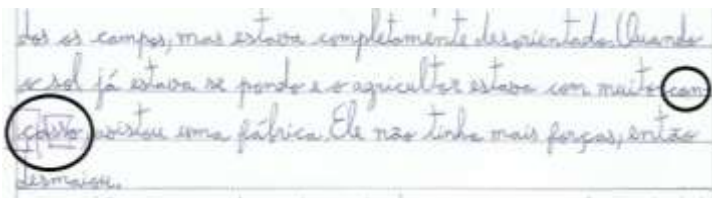 dos os campos, mas estava completamente desorientado. Quando
o sol já estava se pondo e o agricultor estava com muito can
çasso, avistou uma fábrica. Ele não tinha mais forças, então
desmaiou.